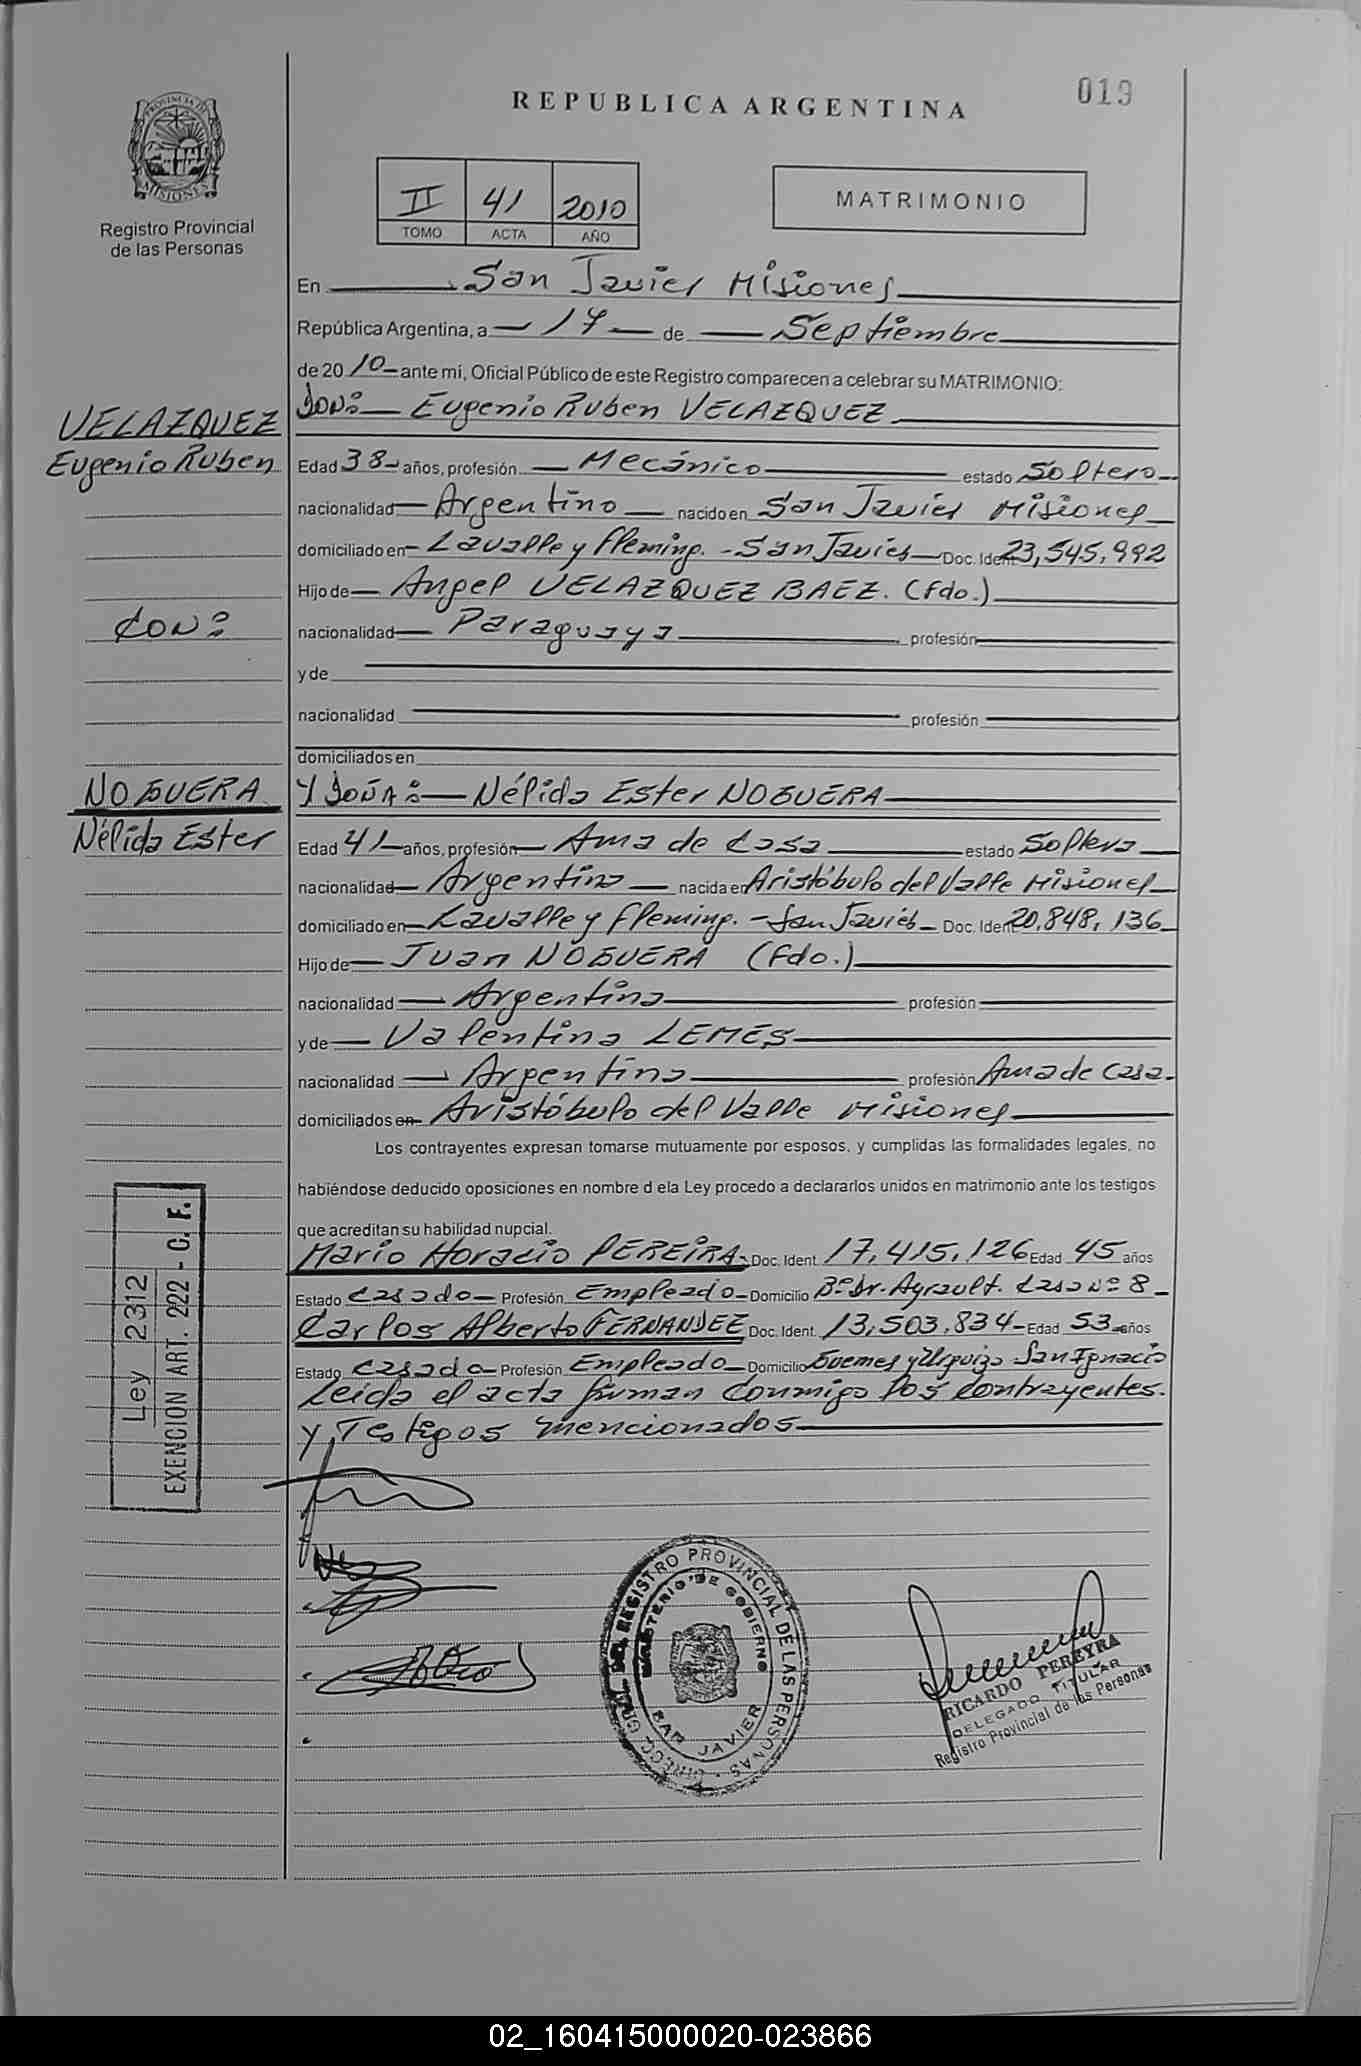 019
REPUBLICA ARGENTINA
PROVINCIA DE MISIONES
Registro Provincial
de las Personas
II 41 2010
TOMO ACTA AÑO
MATRIMONIO
En San Javier Misiones
República Argentina, a 17 de Septiembre
de 2010 ante mi, Oficial Público de este Registro comparecen a celebrar su MATRIMONIO:
VELAZQUEZ
Eugenio Ruben
DON: Eugenio Ruben VELAZQUEZ
Edad 38 años, profesión Mecánico estado Soltero
nacionalidad Argentino nacido en San Javier Misiones
domiciliado en Lavalle y Fleming. - San Javier Doc. Ident 23,545,992
Hijo de Angel VELAZQUEZ BAEZ. (fdo.)
CON:
nacionalidad Paraguaya profesión
y de
nacionalidad profesión
domiciliados en
NOGUERA
Nélida Ester
Y DOÑA: Nélida Ester NOGUERA
Edad 41 años, profesión Ama de Casa estado Soltera
nacionalidad Argentina nacida en Aristóbulo del Valle Misiones
domiciliado en Lavalle y Fleming. - San Javier Doc. Ident 20,848,136
Hijo de Juan NOGUERA (fdo.)
nacionalidad Argentina profesión
y de Valentina LEMES
nacionalidad Argentina profesión Ama de Casa.
domiciliados en Aristóbulo del Valle Misiones
Los contrayentes expresan tomarse mutuamente por esposos, y cumplidas las formalidades legales, no
habiéndose deducido oposiciones en nombre d ela Ley procedo a declararlos unidos en matrimonio ante los testigos
que acreditan su habilidad nupcial.
Mario Horacio PEREIRA Doc. Ident. 17,415,126 Edad 45 años
Estado Casado Profesión Empleado Domicilio Bº Dr. Ayrault. Casa Nº 8
Carlos Alberto FERNANDEZ Doc. Ident. 13,503,834 Edad 53 años
Estado Casado Profesión Empleado Domicilio Guemes y Urquiza San Ignacio
Leida el acta firman conmigo los contrayentes.
y Testigos mencionados
Ley 2312
EXENCION ART. 222 - C. F.
DIRECC. GRAL. DEL REGISTRO PROVINCIAL DE LAS PERSONAS
MINISTERIO DE GOBIERNO
SAN JAVIER
RICARDO PEREYRA
DELEGADO TITULAR
Registro Provincial de las Personas
02_160415000020-023866